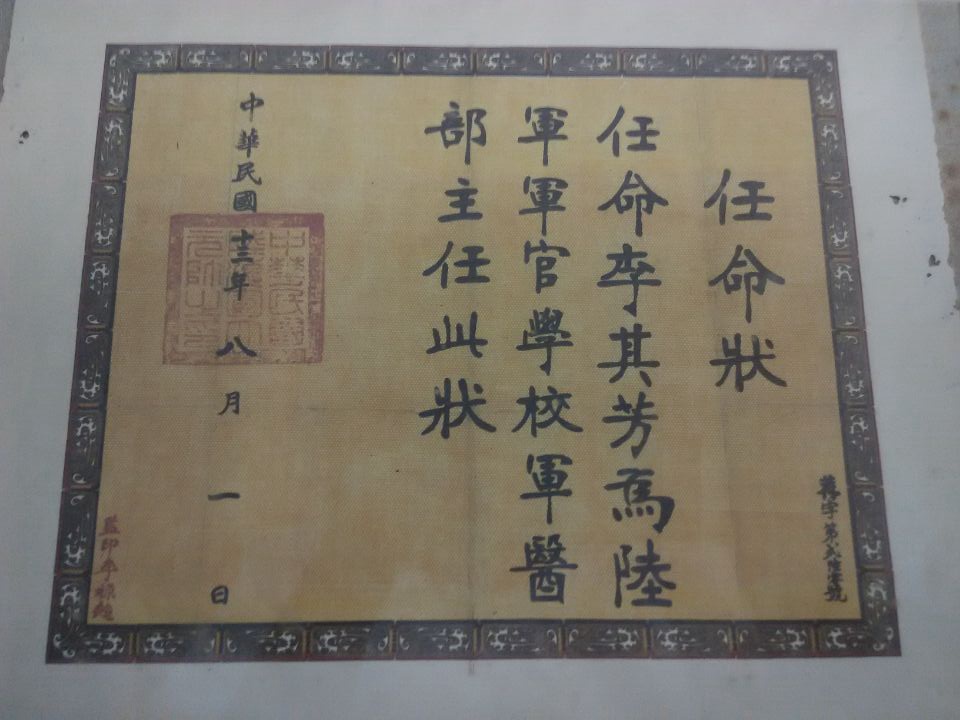 任命狀
任命李其芳爲陸
軍軍官學校軍醫
部主任此狀
中華民國十三年八月一日
中華民國
陸海軍大
元帥之印
監印李祿超